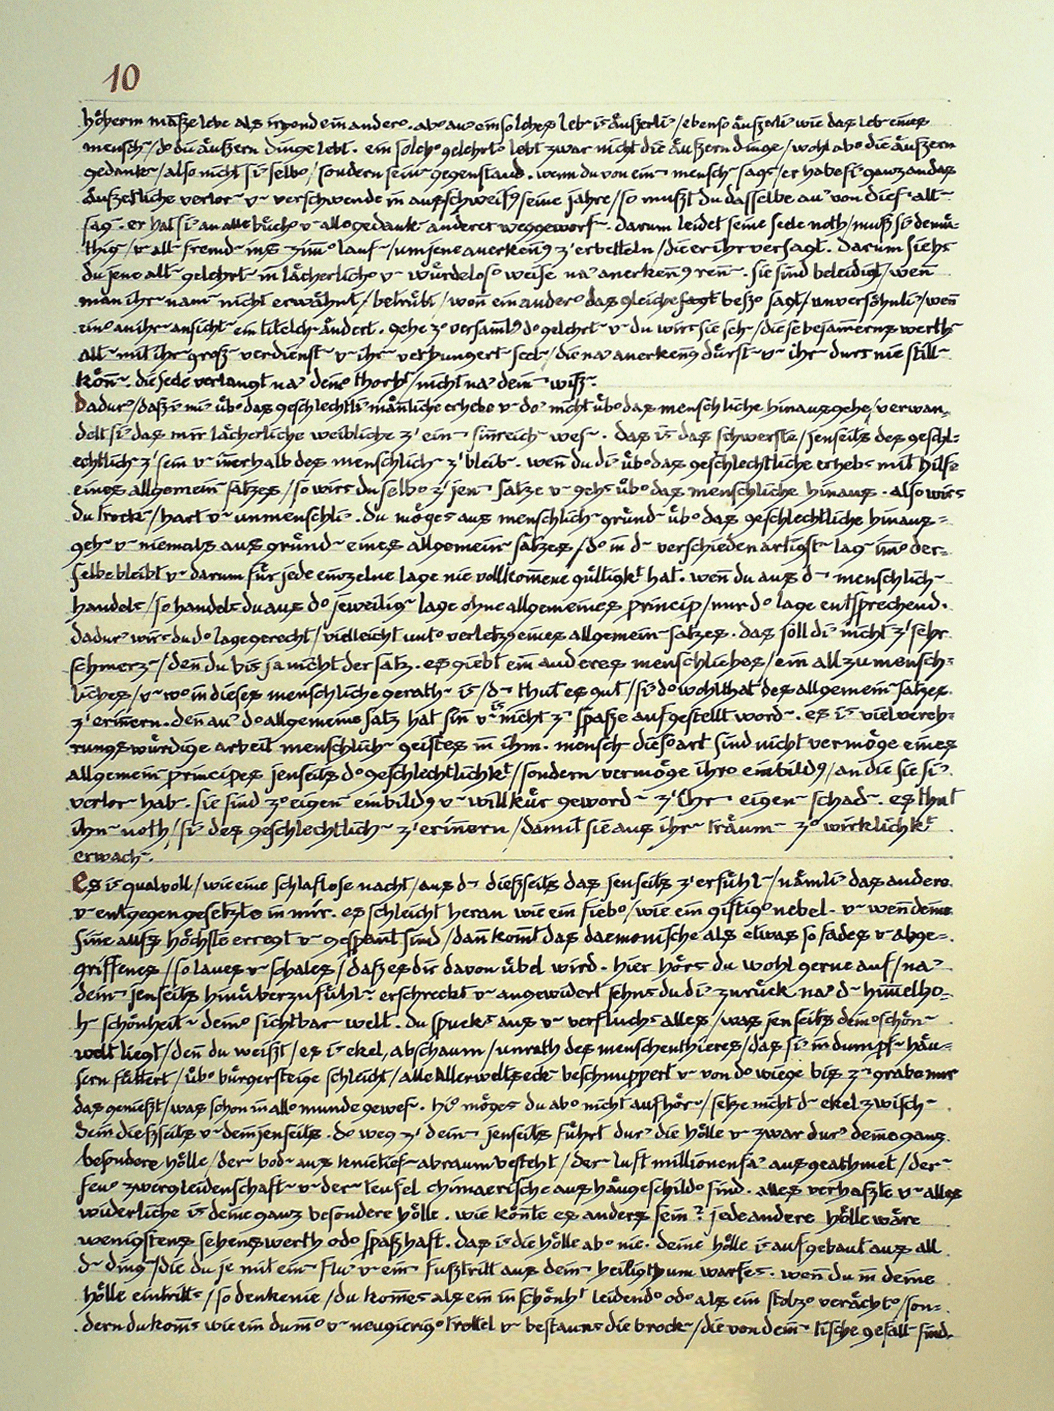 10
höherm māße lebe als irgend ein ander⁰. ab⁰ au' ein solches leb~ is äußerli'/ebenso äußerli' wie das leb~ eines
mensch~/d⁰ die äußern dinge lebt. ein solch⁰ gelehrt⁰ lebt zwar nicht die äußern dinge/wohl ab⁰ die äußern
gedank~/also nicht si' selb⁰/sondern sein~ gegenstand. wenn du von ein~ mensch~ sags/er habe si' ganz an das
äußerliche verlor~ v~ verschwende in ausschweif⁹ seine jahre/so mußt du dasselbe au' von dies~ alt~
sag~. er hat si' an alle büch⁰ v~ alle gedank~ anderer weggeworf~. darum leidet seine sele noth/muß si' demü-
thig~/v~ all~ fremd~ ins zim̄⁰ lauf~/um jene anerken̄⁹ z' erbetteln/die er ihr versagt. darum siehs
du jene alt~ gelehrt~ in lächerlich⁰ v~ würdelos⁰ weise na' anerken̄⁹ ren̄~. sie sind beleidigt/wen̄
man ihr~ nam~ nicht erwähnt/betrübt/wen̄ ein ander⁰ das gleiche sagt bess⁰ sagt/unversöhnli'/wen̄
ein⁰ an ihr~ ansicht~ ein titelch~ ändert. gehe z⁰ versam̄l⁹ d⁰ gelehrt~ v~ du wirs sie seh~/diese bejam̄ernswerth~
alt~ mit ihr~ groß~ verdienst~ v~ ihr~ verhungert~ seel~/die na' anerken̄⁹ dürst~ v~ ihr~ durs nie still~
kön̄~. die sele verlangt na' dein⁰ thorht/nicht na' dein~ wiss~.
Dadur'/daß i' mi' üb⁰ das geschlechtli' mänliche erhebe v~ do' nicht üb⁰ das menschliche hinausgehe/verwan-
delt si' das mir lächerliche weibliche z' ein~ sin̄reich~ wes~. das is das schwerste/jenseits des geschl-
echtlich~ z' sein v~ in̄erhalb des menschlich~ z' bleib~. wen̄ du di' üb⁰ das geschlechtliche erhebs mit hilfe
eines allgemein~ satzes/so wirs du selb⁰ z' jen~ satze v~ gehs üb⁰ das menschliche hinaus. also wirs
du trock~/hart v~ unmenschli'. du möges aus menschlich~ gründ~ üb⁰ das geschlechtliche hinaus-
geh~ v~ niemals aus gründ~ eines allgemein~ satzes/d⁰ in d~ verschiedenartigst~ lag~ im̄⁰ der-
selbe bleibt v~ darum für jede einzelne lage nie vollkom̄ene gültigkt hat. wen̄ du aus d~ menschlich~
handels/so handels du aus d⁰ jeweilig~ lage ohne allgemeines princip/nur d⁰ lage entsprechend.
dadur' wirs du d⁰ lage gerecht/vielleicht unt⁰ verletz⁹ eines allgemein~ satzes. das soll di' nicht z' sehr
schmerz~/den̄ du bis ja nicht der satz. es giebt ein anderes menschliches/ein allzumensch-
liches/v~ wo in dieses menschliche gerath~ is/d~ thut es gut/si' d⁰ wohlthat des allgemein~ satzes
z' erin̄ern. den̄ au' d⁰ allgemeine satz hat sin̄ v~ is nicht z' spaße aufgestellt word~. es is viel vereh-
rungswürdige arbeit menschlich~ geistes in ihm. mensch~ dies⁰ art sind nicht vermöge eines
allgemein~ principes jenseits d⁰ geschlechtlichkt/sondern vermöge ihr⁰ einbild⁹/an die sie si'
verlor~ hab~. sie sind z⁰ eigen~ einbild⁹ v~ willkür geword~ z' ihr~ eigen~ schad~. es thut
ihn~ noth/si' des geschlechtlich~ z' erin̄ern/damit sie aus ihr~ träum~ z⁰ wirklichkt
erwach~.
Es is qualvoll/wie eine schlaflose nacht/aus d~ dießseits das jenseits z' erfühl~/nämli' das andere
v~ entgegengesetzte in mir. es schleicht heran wie ein fieb⁰/wie ein giftig⁰ nebel. v~ wen̄ deine
sin̄e aufs höchste erregt v~ gespan̄t sind/dan̄ kom̄t das daemonische als etwas so fades v~ abge-
griffenes/so laues v~ schales/daß es dir davon übel wird. hier hörs du wohl gerne auf/na'
dein~ jenseits hinüberzufühl~. erschreckt v~ angewidert sehns du di' zurück na' d~ him̄elho-
h~ schönheit~ dein⁰ sichtbar~ welt. du spucks aus v~ verfluchs alles/was jenseits dein⁰ schön~
welt liegt/den̄ du weißt/es is ekel, abschaum/unrath des menschenthieres/das si' in dumpf~ häu-
sern füttert/üb⁰ bürgersteige schleicht/alle Allerweltseck~ beschnuppert v~ von d⁰ wiege bis z~ grabe nur
das genießt/was schon in all⁰ munde gewes~. hi⁰ möges du ab⁰ nicht aufhör~/setze nicht d~ ekel zwisch~
dein dießseits v~ dein jenseits. d⁰ weg z' dein~ jenseits führt dur' die hölle v~ zwar dur' deine ganz
besondere hölle/der~ bod~ aus knietief~ abraum besteht/der~ luft millionenfa' ausgeathmet/der~
feu⁰ zwergleidenschaft~ v~ der~ teufel chimaerische aushängeschild⁰ sind. alles verhaßte v~ alles
widerliche is deine ganz besondere hölle. wie kön̄te es anders sein? jede andere hölle wäre
wenigstens sehenswerth od⁰ spaßhaft. das is die hölle ab⁰ nie. deine hölle is aufgebaut aus all
d~ ding~/die du je mit ein~ flu' v~ ein~ fußtritt aus dein~ heiligthum warfes. wen̄ du in deine
hölle eintritts/so denke nie/du kom̄es als ein in schönht leidend⁰ od⁰ als ein stolz⁰ verächt⁰/son-
dern du kom̄s wie ein dum̄⁰ v~ neugierig⁰ trottel v~ bestauns die brock~/die von dein~ tische gefall~ sind.